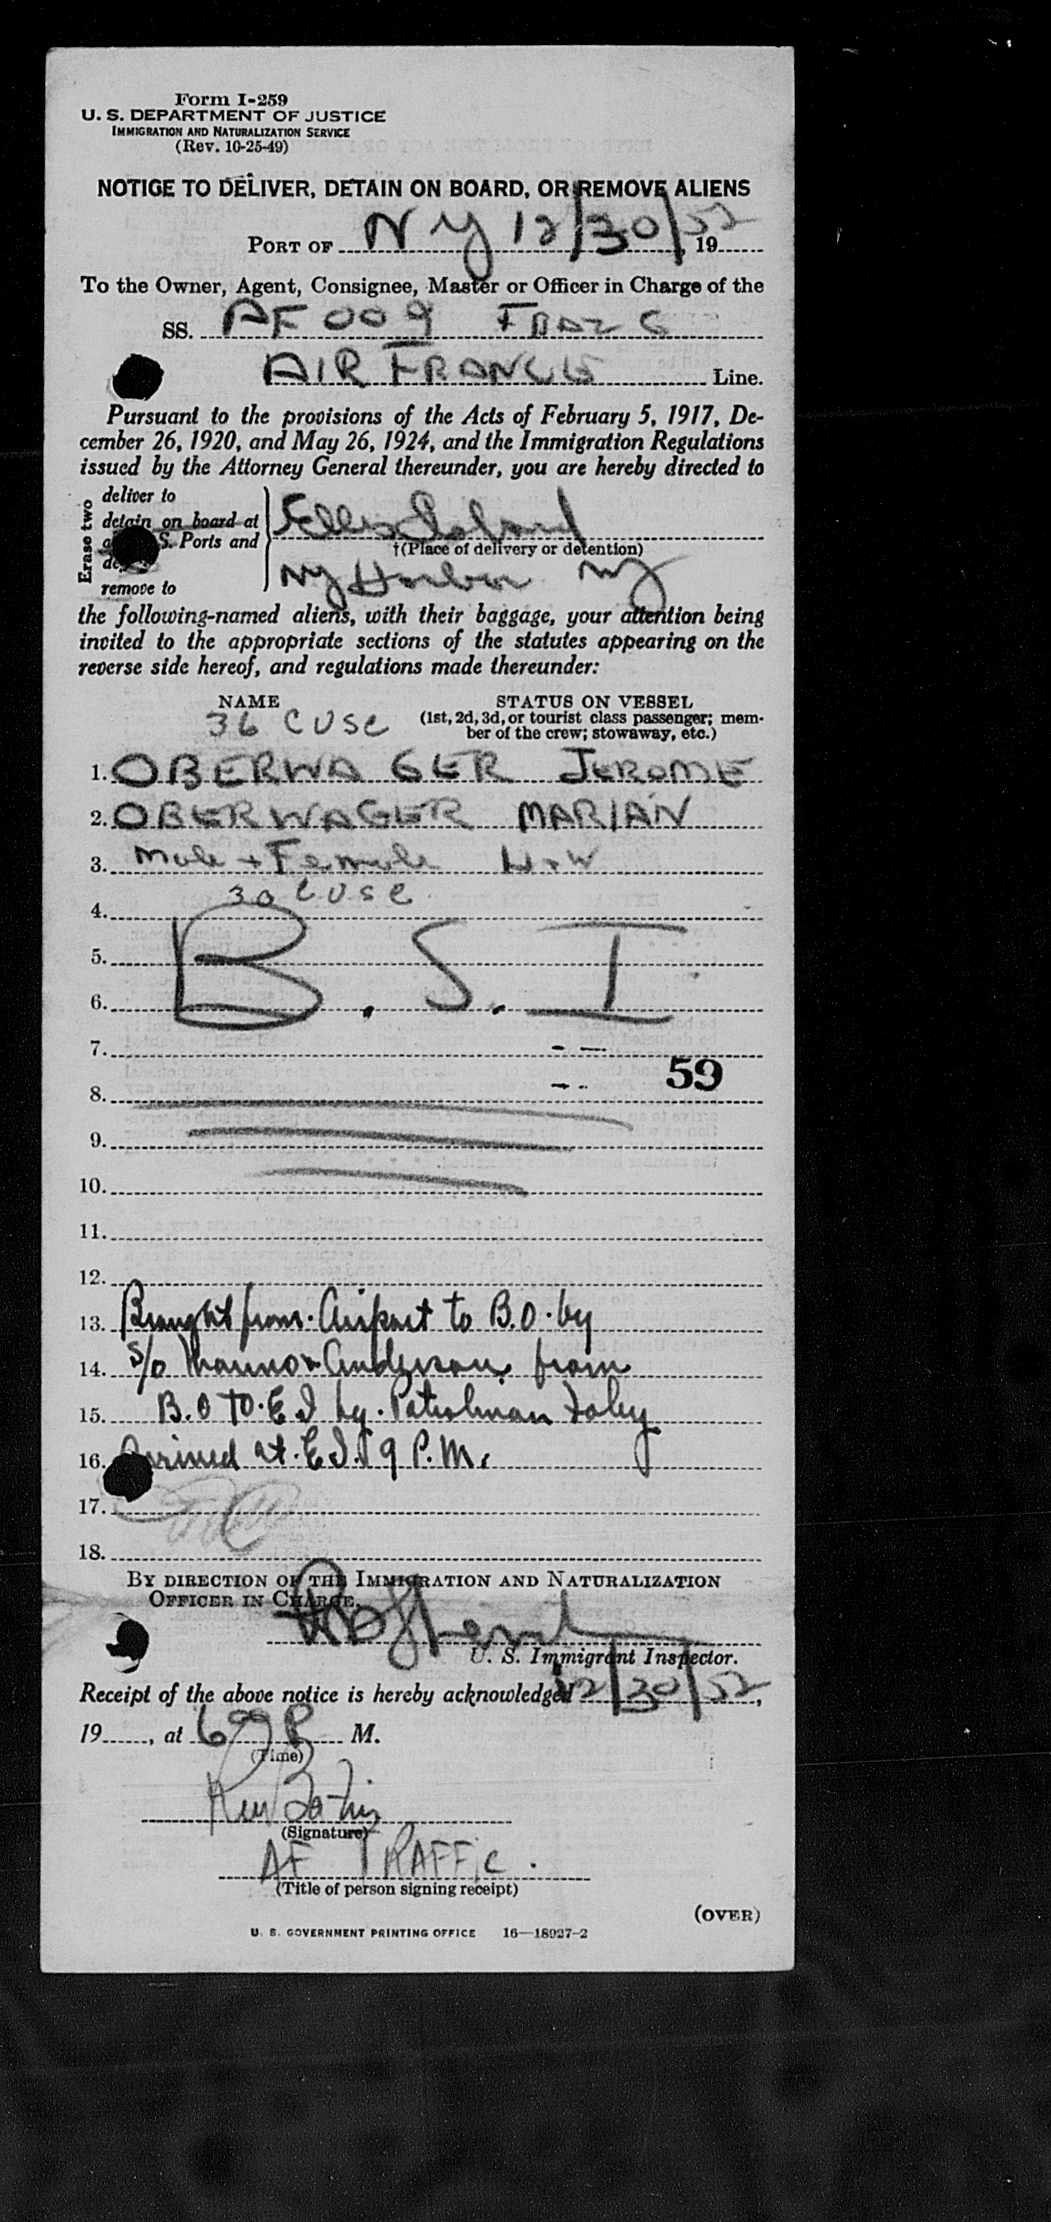 Form I-259
U. S. DEPARTMENT OF JUSTICE
IMMIGRATION AND NATURALIZATION SERVICE
(Rev. 10-25-49)
NOTICE TO DELIVER, DETAIN ON BOARD, OR REMOVE ALIENS
PORT OF N Y 12/30/52, 19
To the Owner, Agent, Consignee, Master or Officer in Charge of the
SS. AF 009
AIR FRANCE Line.
Pursuant to the provisions of the Acts of February 5, 1917, De-
cember 26, 1920, and May 26, 1924, and the Immigration Regulations
issued by the Attorney General thereunder, you are hereby directed to
Erase two
deliver to
detain on board at
S. Ports and
remove to
Ellis Island
†(Place of delivery or detention)
NY Harbor NY
the following-named aliens, with their baggage, your attention being
invited to the appropriate sections of the statutes appearing on the
reverse side hereof, and regulations made thereunder:
NAME STATUS ON VESSEL
36 C USC (1st, 2d, 3d, or tourist class passenger; mem-
ber of the crew; stowaway, etc.)
1. OBERWAGER JEROME
2. OBERWAGER MARIAN
3. Male + Female H+W
4. 30 C USC
5. B. S. I.
6.
7.
59
8.
9.
10.
11.
12.
13. Brought from Airport to B.O. by
14. S/o Anderson from
15. B.O TO E I by Patrolman Foley
16. Arrived at E I 9 P.M.
17.
18.
BY DIRECTION OF THE IMMIGRATION AND NATURALIZATION
OFFICER IN CHARGE.
U. S. Immigrant Inspector.
Receipt of the above notice is hereby acknowledged 12/30/52,
19, at P M.
(Time)
(Signature)
AF TRAFFIC.
(Title of person signing receipt)
(OVER)
U. S. GOVERNMENT PRINTING OFFICE 16—18927-2